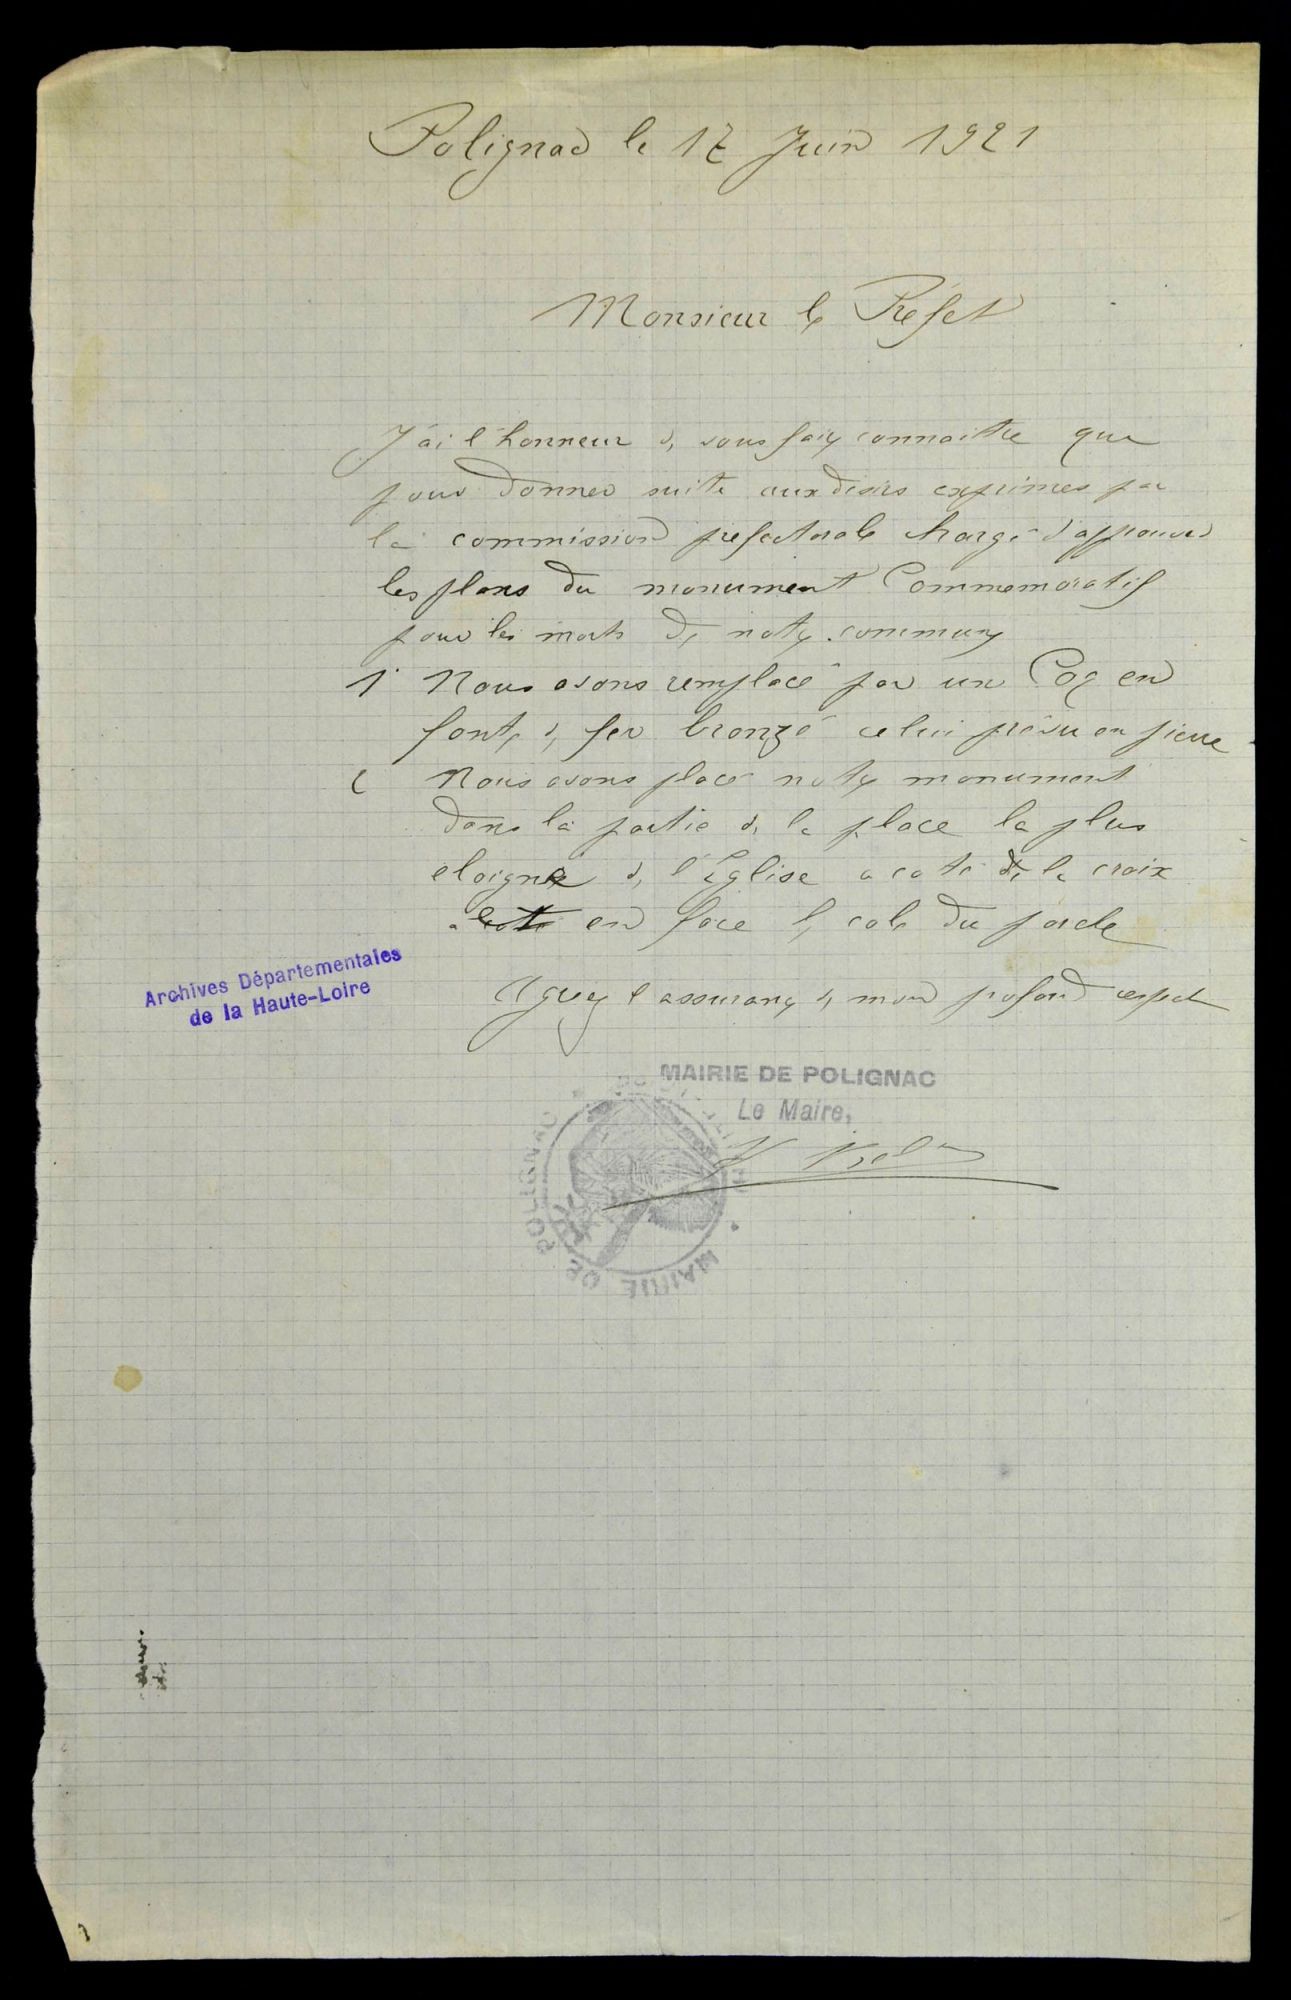 Polignac le 17 Juin 1921
Monsieur le Préfet
J'ai l'honneur de vous faire connaitre que
pour donner suite aux desirs exprimes par
la commission prefectorale chargé d'approuver
les plans du monument Commemoratif
pour les morts de notre commune
1° Nous avons remplacé par un Coq en
fonte de fer bronzé celui prévu en pierre
2 Nous avons placé notre monument
dans la partie de la place la plus
eloigné de l'Eglise a coté de la croix
en face le
Agréez l'assurance de mon profond respect
Archives Départementales
de la Haute-Loire
MAIRIE DE POLIGNAC
Le Maire,
MAIRIE DE POLIGNAC